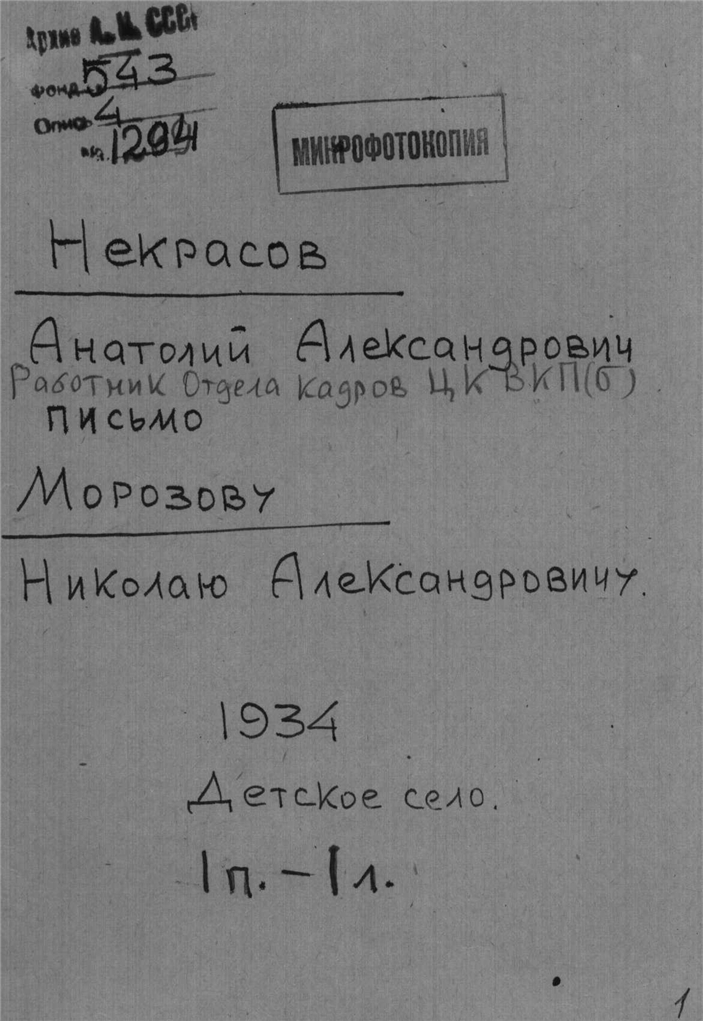 Архив А.Н. СССР
Фонд 543
Опись 4
№ 1294
МИКРОФОТОКОПИЯ
Некрасов
Анатолий Александрович
Работник Отдела кадров ЦК ВКП(б)
письмо
Морозову
Николаю Александровичу.
1934
Детское село.
1 п. – 1 л.
1